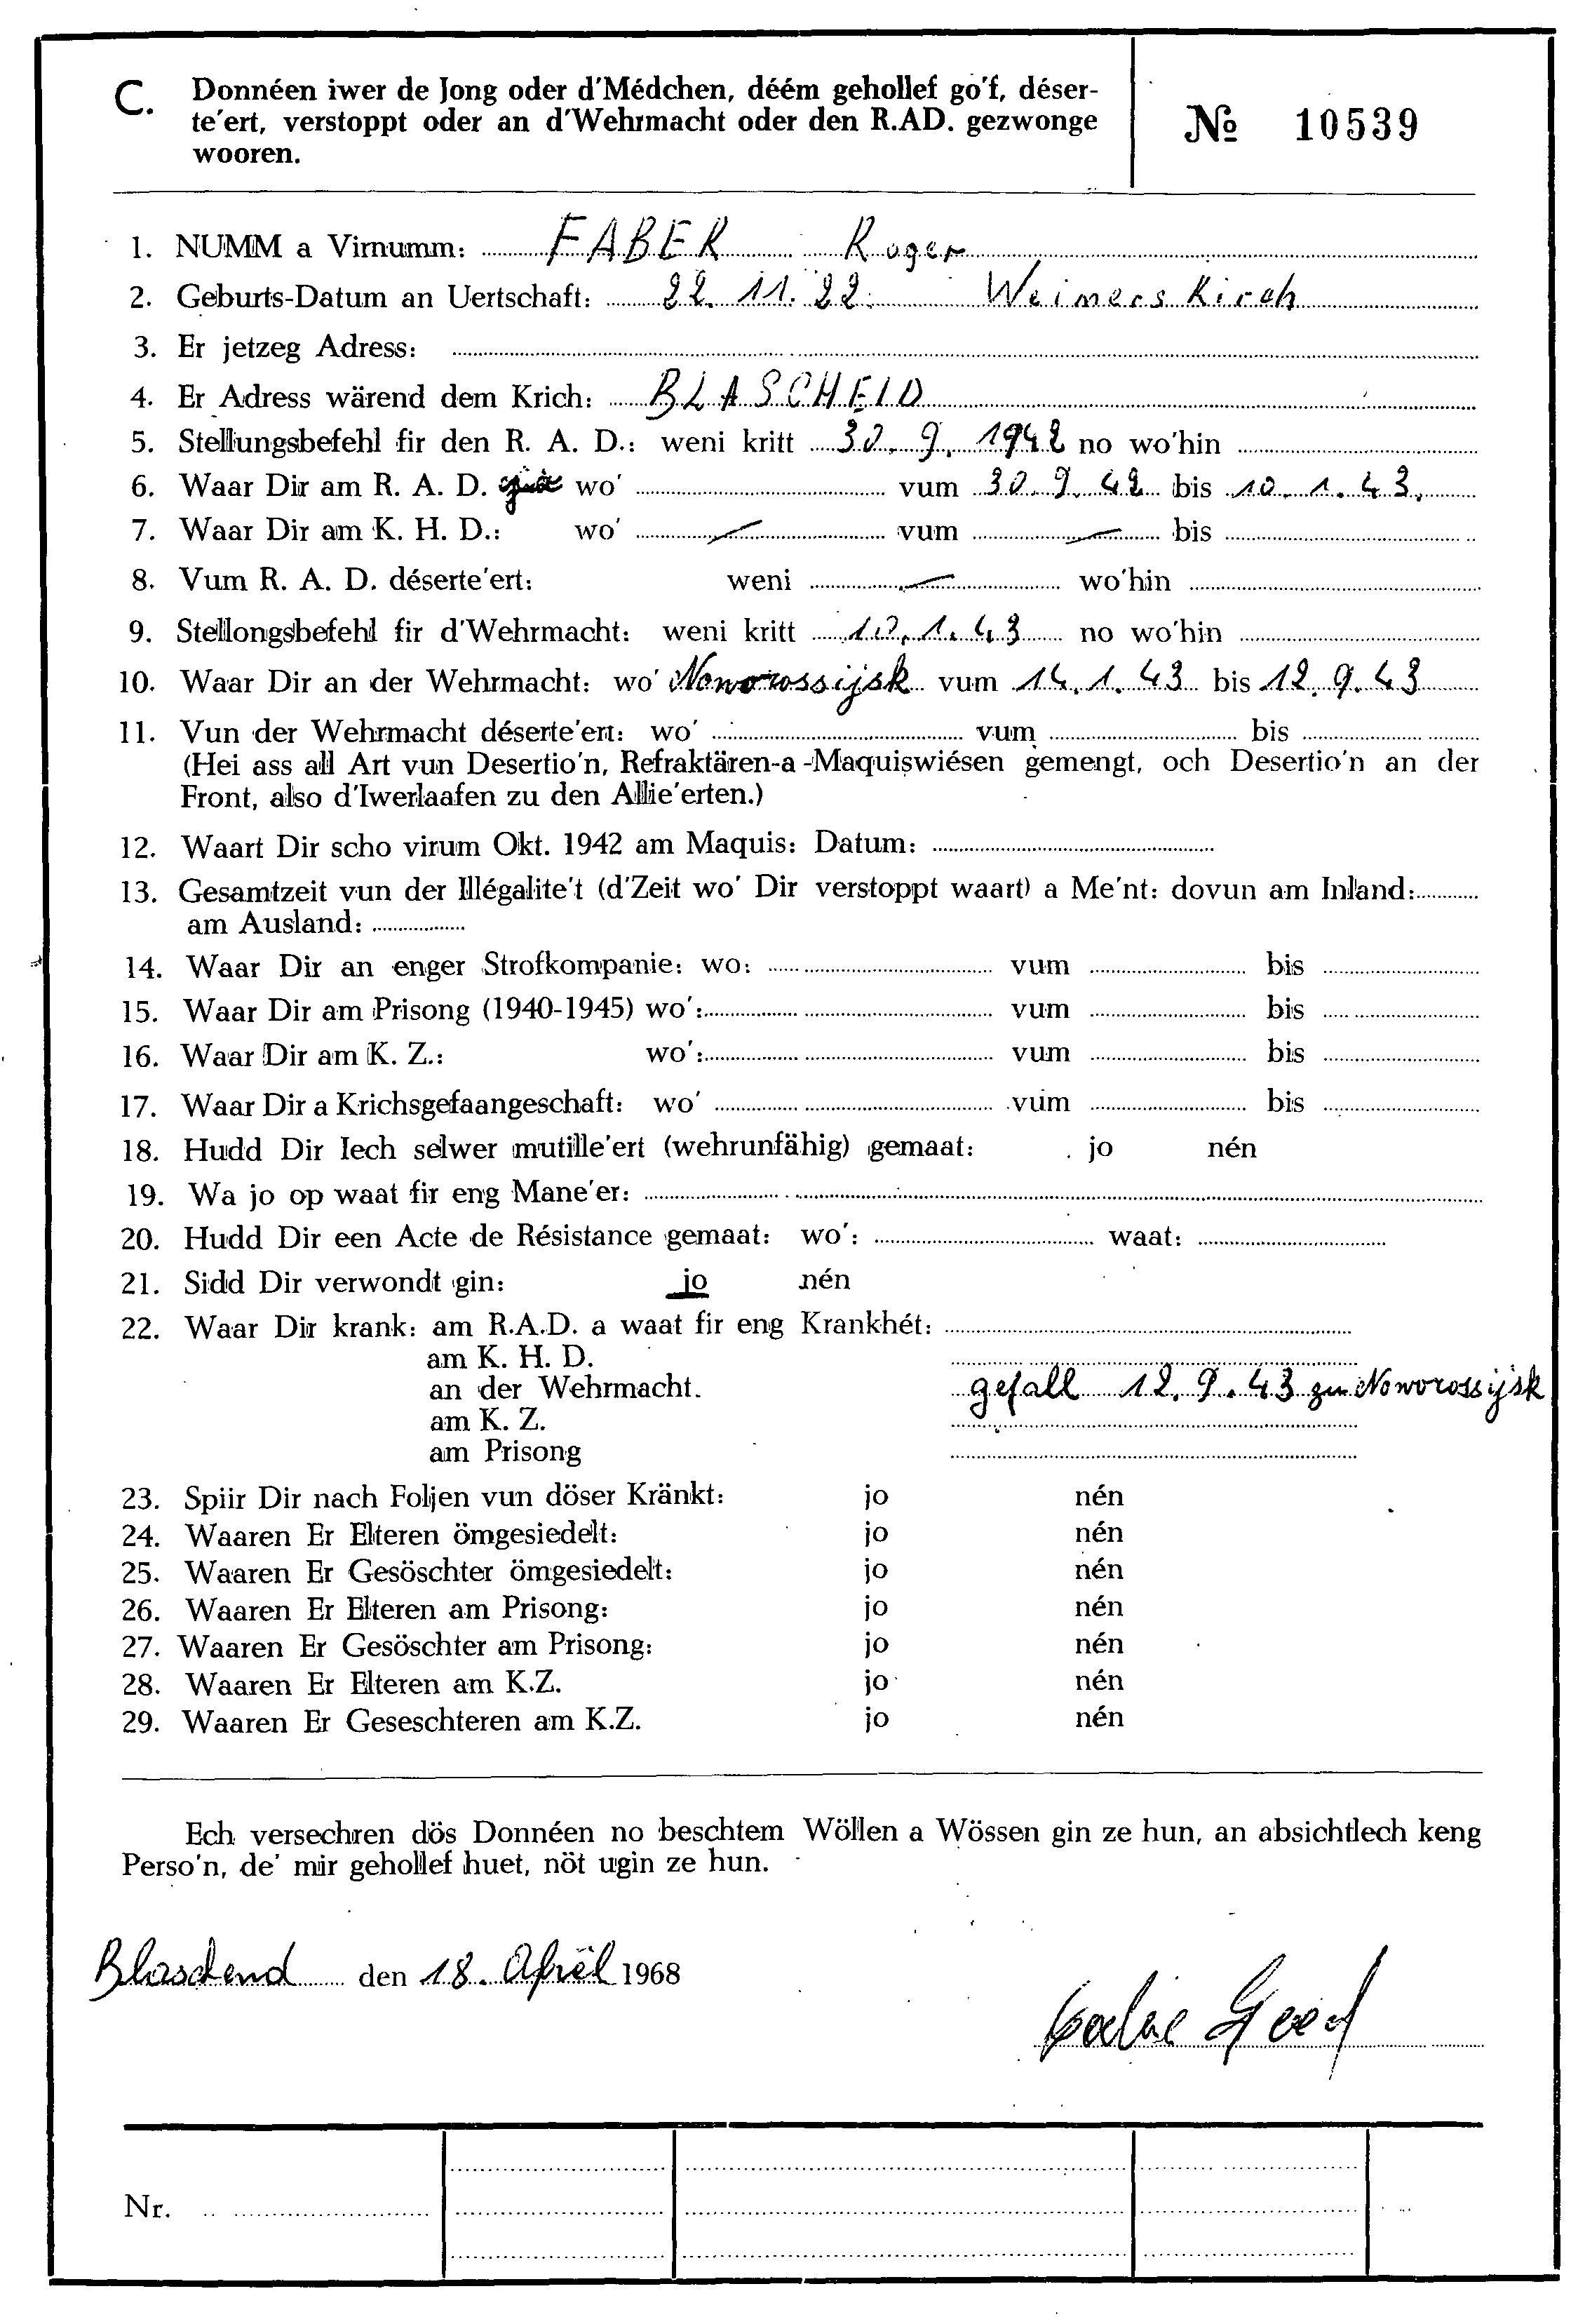 C. Donnéen iwer de Jong oder d'Médchen, déém gehollef go'f, déser-
te'ert, verstoppt oder an d'Wehrmacht oder den R.AD. gezwonge
wooren.
№ 10539
1. NUMM a Virnumm: FABER Roger
2. Geburts-Datum an Uertschaft: 22. 11. 22. Weimerskirch
3. Er jetzeg Adress:
4. Er Adress wärend dem Krich: BLASCHEID
5. Stellungsbefehl fir den R. A. D.: weni kritt 30. 9. 1942 no wo'hin
6. Waar Dir am R. A. D. wo' vum 30. 9. 42 bis 10. 1. 43.
7. Waar Dir am K. H. D.: wo' — vum — bis
8. Vum R. A. D. déserte'ert: weni — wo'hin
9. Stellongsbefehl fir d'Wehrmacht: weni kritt 10. 1. 43 no wo'hin
10. Waar Dir an der Wehrmacht: wo' Noworossijsk vum 14. 1. 43 bis 12. 9. 43
11. Vun der Wehrmacht déserte'ert: wo' vum bis
(Hei ass all Art vun Desertio'n, Refraktären-a-Maquiswiésen gemengt, och Desertio'n an der
Front, also d'Iwerlaafen zu den Allie'erten.)
12. Waart Dir scho virum Okt. 1942 am Maquis: Datum:
13. Gesamtzeit vun der Illégalite't (d'Zeit wo' Dir verstoppt waart) a Me'nt: dovun am Inland:
am Ausland:
14. Waar Dir an enger Strofkompanie: wo: vum bis
15. Waar Dir am Prisong (1940-1945) wo': vum bis
16. Waar Dir am K. Z.: wo': vum bis
17. Waar Dir a Krichsgefaangeschaft: wo' vum bis
18. Hudd Dir Iech selwer mutille'ert (wehrunfähig) gemaat: jo nén
19. Wa jo op waat fir eng Mane'er:
20. Hudd Dir een Acte de Résistance gemaat: wo': waat:
21. Sidd Dir verwondt gin: jo nén
22. Waar Dir krank: am R.A.D. a waat fir eng Krankhét:
am K. H. D.
an der Wehrmacht. gefall 12. 9. 43 zu Noworossijsk
am K. Z.
am Prisong
23. Spiir Dir nach Foljen vun döser Kränkt: jo nén
24. Waaren Er Elteren ömgesiedelt: jo nén
25. Waaren Er Gesöschter ömgesiedelt: jo nén
26. Waaren Er Elteren am Prisong: jo nén
27. Waaren Er Gesöschter am Prisong: jo nén
28. Waaren Er Elteren am K.Z. jo nén
29. Waaren Er Geseschteren am K.Z. jo nén
Ech versechren dös Donnéen no beschtem Wöllen a Wössen gin ze hun, an absichtlech keng
Perso'n, de' mir gehollef huet, nöt ugin ze hun.
den 18. Aprël 1968
Nr.